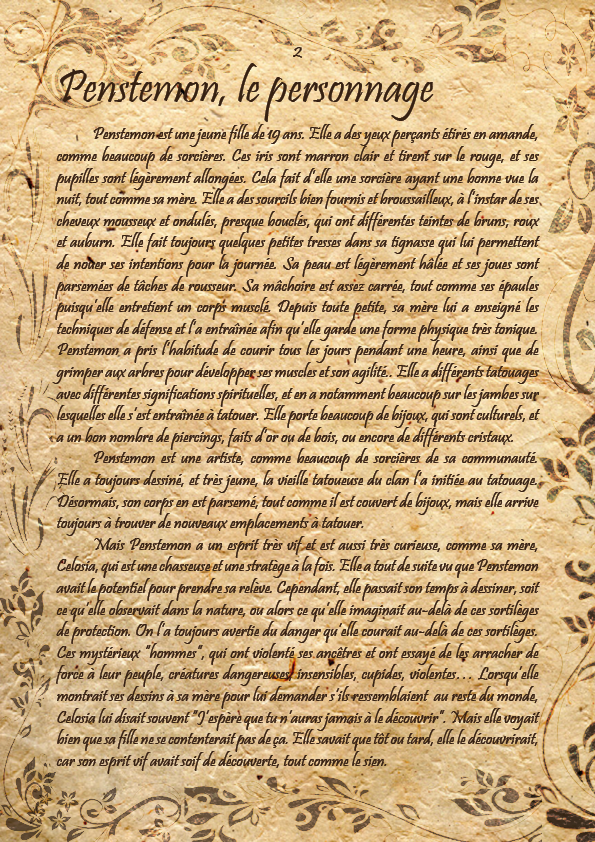 2
Penstemon, le personnage
Penstemon est une jeune fille de 19 ans. Elle a des yeux perçants étirés en amande,
comme beaucoup de sorcières. Ces iris sont marron clair et tirent sur le rouge, et ses
pupilles sont légèrement allongées. Cela fait d'elle une sorcière ayant une bonne vue la
nuit, tout comme sa mère. Elle a des sourcils bien fournis et broussailleux, à l'instar de ses
cheveux mousseux et ondulés, presque bouclés, qui ont différentes teintes de bruns, roux
et auburn. Elle fait toujours quelques petites tresses dans sa tignasse qui lui permettent
de nouer ses intentions pour la journée. Sa peau est légèrement hâlée et ses joues sont
parsemées de tâches de rousseur. Sa mâchoire est assez carrée, tout comme ses épaules
puisqu'elle entretient un corps musclé. Depuis toute petite, sa mère lui a enseigné les
techniques de défense et l'a entraînée afin qu'elle garde une forme physique très tonique.
Penstemon a pris l'habitude de courir tous les jours pendant une heure, ainsi que de
grimper aux arbres pour développer ses muscles et son agilité.. Elle a différents tatouages
avec différentes significations spirituelles, et en a notamment beaucoup sur les jambes sur
lesquelles elle s'est entraînée à tatouer. Elle porte beaucoup de bijoux, qui sont culturels, et
a un bon nombre de piercings, faits d'or ou de bois, ou encore de différents cristaux.
Penstemon est une artiste, comme beaucoup de sorcières de sa communauté.
Elle a toujours dessiné, et très jeune, la vieille tatoueuse du clan l'a initiée au tatouage.
Désormais, son corps en est parsemé, tout comme il est couvert de bijoux, mais elle arrive
toujours à trouver de nouveaux emplacements à tatouer.
Mais Penstemon a un esprit très vif et est aussi très curieuse, comme sa mère,
Celosia, qui est une chasseuse et une stratège à la fois. Elle a tout de suite vu que Penstemon
avait le potentiel pour prendre sa relève. Cependant, elle passait son temps à dessiner, soit
ce qu'elle observait dans la nature, ou alors ce qu'elle imaginait au-delà de ces sortilèges
de protection. On l'a toujours avertie du danger qu'elle courait au-delà de ces sortilèges.
Ces mystérieux "hommes", qui ont violenté ses ancêtres et ont essayé de les arracher de
force à leur peuple, créatures dangereuses, insensibles, cupides, violentes... Lorsqu'elle
montrait ses dessins à sa mère pour lui demander s'ils ressemblaient au reste du monde,
Celosia lui disait souvent "J'espère que tu n'auras jamais à le découvrir". Mais elle voyait
bien que sa fille ne se contenterait pas de ça. Elle savait que tôt ou tard, elle le découvrirait,
car son esprit vif avait soif de découverte, tout comme le sien.